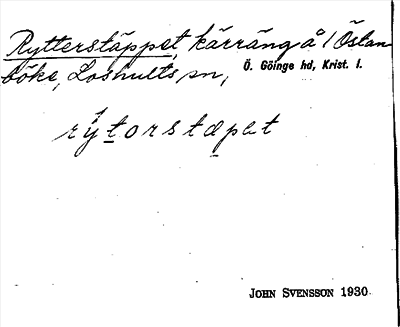 Rytterstäppet, kärräng å / Östan-
böke, Loshults sn, Ö. Göinge hd, Krist. l.
rytorstapet
JOHN SVENSSON 1930.